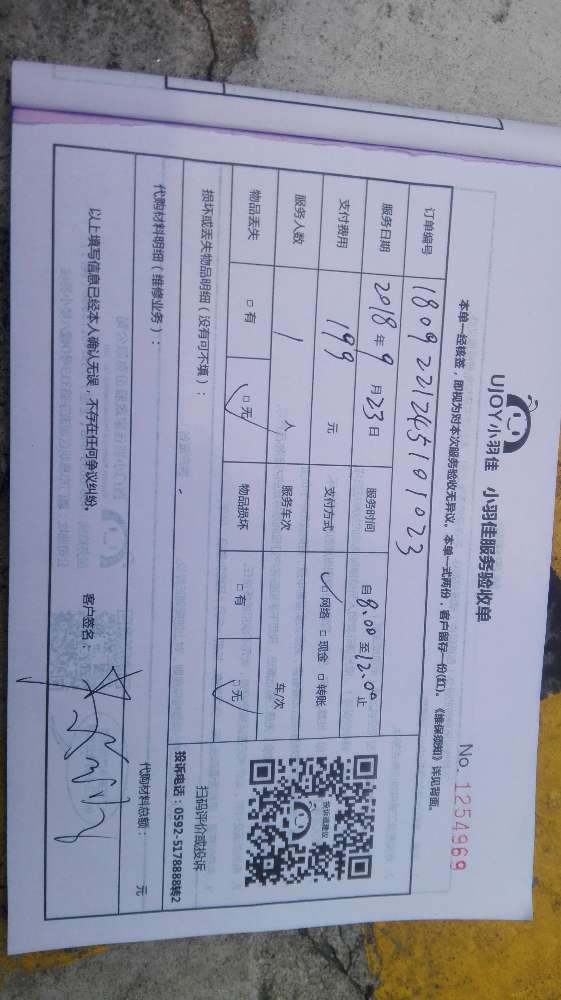 UJOY小羽佳 小羽佳服务验收单
No. 1254969
本单一经核签，即视为对本次服务验收无异议。本单一式两份，客户留存一份(红)。《维保须知》详见背面。
订单编号 180922124510 1023
服务日期 2018年9月23日 服务时间 自8.00至12.00止
支付费用 199 元 支付方式 ✓□网络 □现金 □转账
服务人数 1 人 服务车次 车/次
物品丢失 □有 ✓□无 物品损坏 □有 ✓□无
损坏或丢失物品明细（没有可不填）：
投诉通道建议
扫码评价或投诉
投诉电话：0592-5178888转2
代购材料明细（维修业务）：
代购材料总额： 元
以上填写信息已经本人确认无误，不存在任何争议纠纷。
客户签名：